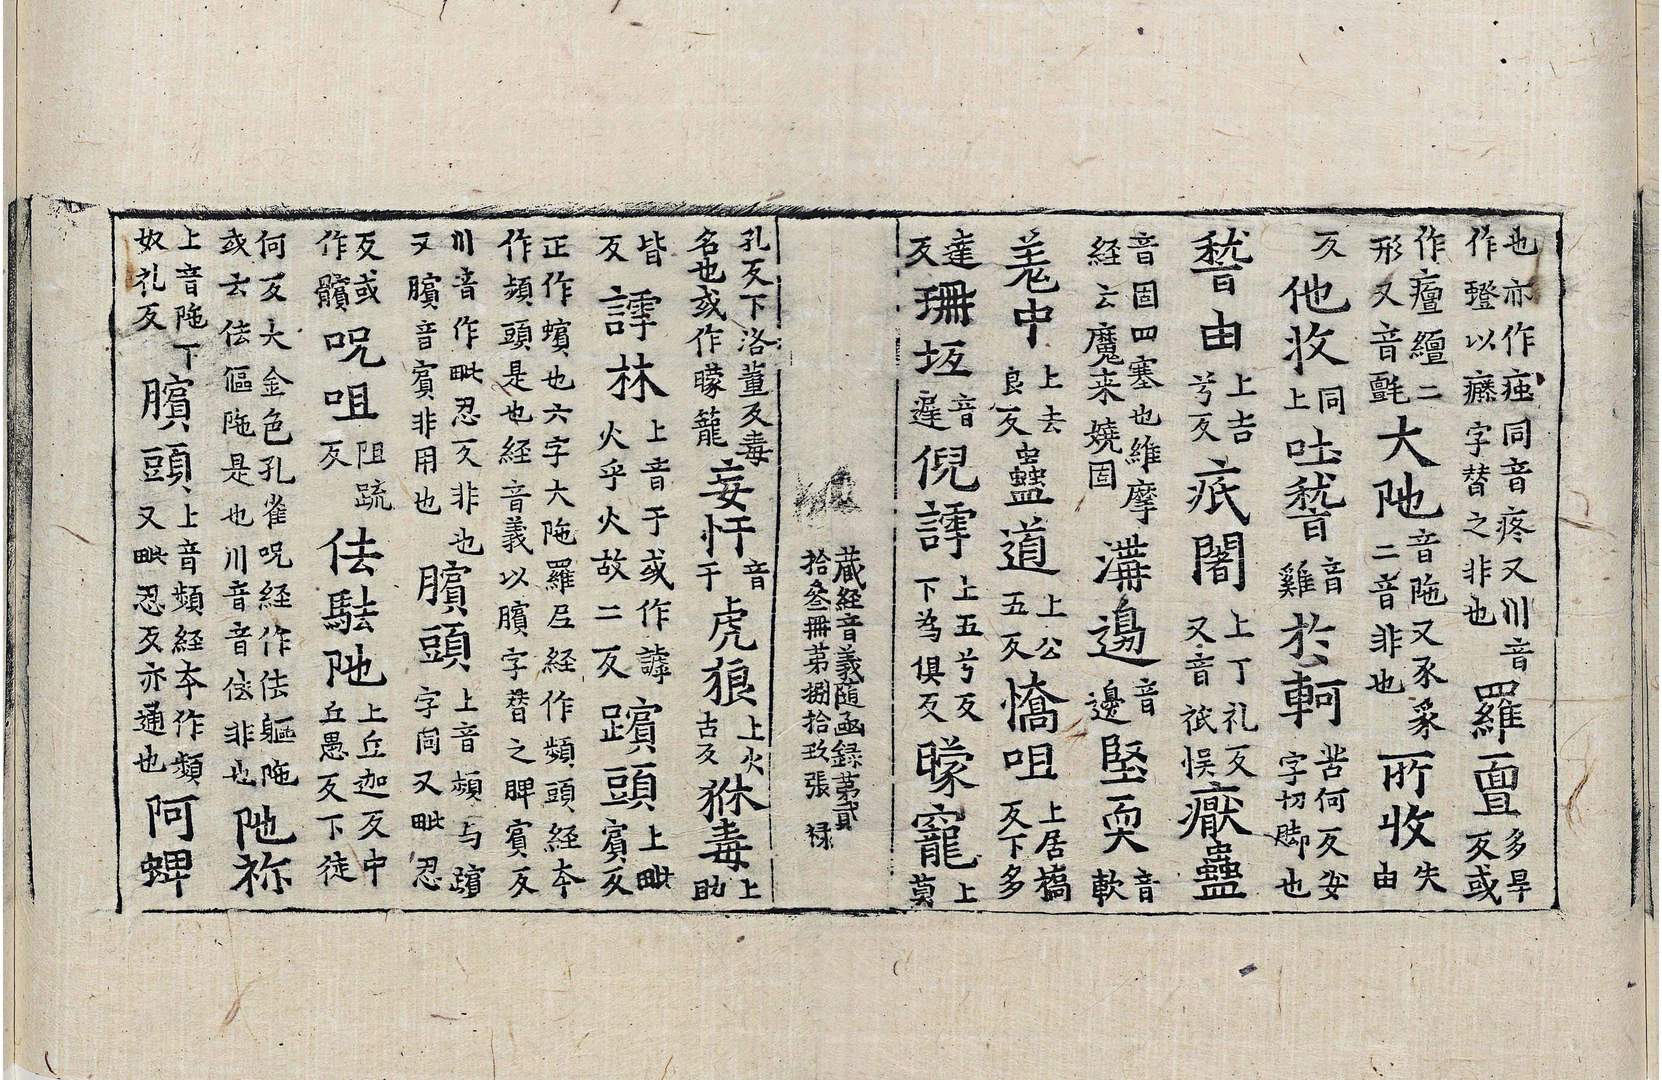 也亦作痋同音疼又川音作璒以癡字替之非也羅亶多旱反或
作癉纏二形又音氈大阤音陁又豕豸二音非也所收失由
反他收同上吐嵆音雞於軻苦何反安字切脚也
嵆由上吉兮反疧闍上丁礼反又音祇悮瘚蠱
音固四塞也維摩経云魔来嬈固溝邊音邊堅耎音軟
羌中上去良反蠱道上公五反憍咀上居橋反下多
達反珊坘音遲倪謣上五兮反下為俱反曚竉上莫
藏経音義随函録第貳
拾叅冊苐捌拾玖張 禄
孔反下洛董反毒名也或作曚籠妄忓音干虎狼上火古反毒上助
皆反謣林上音于或作謼火乎火故二反蠙頭上毗賔反
正作蠙也六字大陁羅尼経作頻頭経本作頻頭是也経音義以臏字替之脾賔反
川音作毗忍反非也又臏音賔非用也臏頭上音頻与躓字同又毗忍
反或作髕呪咀阻䟽反佉駄阤上丘迦反中丘愚反下徒
何反大金色孔雀呪経作佉軀陁或云佉傴陁是也川音音佉非也阤祢
上音陁下奴礼反臏頭上音頻経本作頻又毗忍反亦通也阿蜱